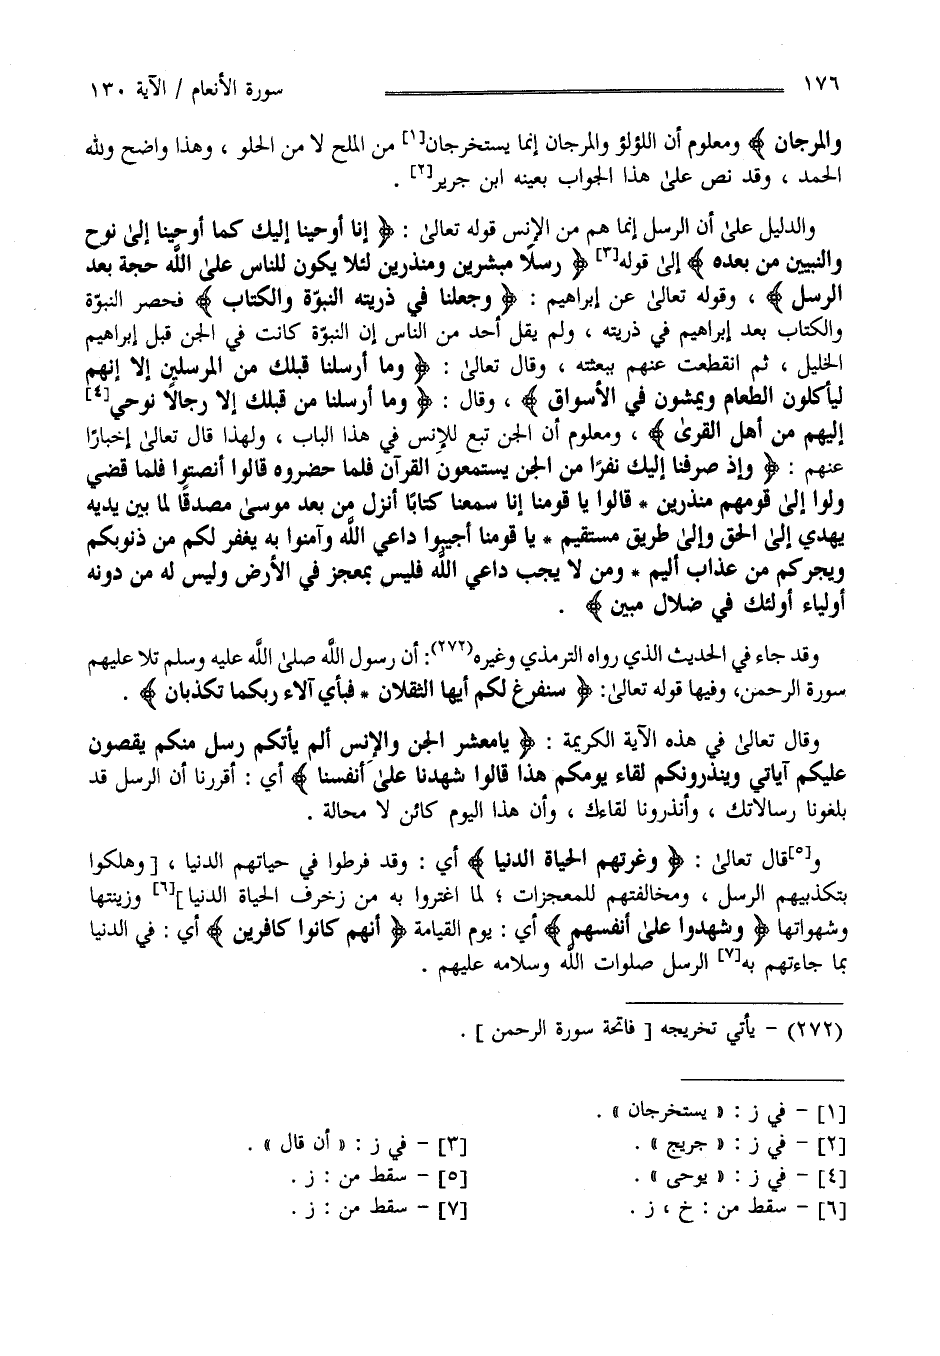 ١٧٦
سورة الأنعام / الآية ١٣٠
والمرجان ﴾ ومعلوم أن اللؤلؤ والمرجان إنما يستخرجان[١] من الملح لا من الحلو ، وهذا واضح ولله
الحمد ، وقد نص على هذا الجواب بعينه ابن جرير[٢] .
والدليل على أن الرسل إنما هم من الإنس قوله تعالى : ﴿ إنا أوحينا إليك كما أوحينا إلى نوح
والنبيين من بعده ﴾ إلى قوله[٣] ﴿ رسلًا مبشرين ومنذرين لئلا يكون للناس على الله حجة بعد
الرسل ﴾ ، وقوله تعالى عن إبراهيم : ﴿ وجعلنا في ذريته النبوّة والكتاب ﴾ فحصر النبوّة
والكتاب بعد إبراهيم في ذريته ، ولم يقل أحد من الناس إن النبوّة كانت في الجن قبل إبراهيم
الخليل ، ثم انقطعت عنهم ببعثته ، وقال تعالى : ﴿ وما أرسلنا قبلك من المرسلين إلا إنهم
ليأكلون الطعام ويمشون في الأسواق ﴾ ، وقال : ﴿ وما أرسلنا من قبلك إلا رجالًا نوحي[٤]
إليهم من أهل القرى ﴾ ، ومعلوم أن الجن تبع للإنس في هذا الباب ، ولهذا قال تعالى إخبارًا
عنهم : ﴿ وإذ صرفنا إليك نفرًا من الجن يستمعون القرآن فلما حضروه قالوا أنصتوا فلما قضي
ولوا إلى قومهم منذرين * قالوا يا قومنا إنا سمعنا كتابًا أنزل من بعد موسى مصدقًا لما بين يديه
يهدي إلى الحق وإلى طريق مستقيم * يا قومنا أجيبوا داعي الله وآمنوا به يغفر لكم من ذنوبكم
ويجركم من عذاب أليم * ومن لا يجب داعي الله فليس بمعجز في الأرض وليس له من دونه
أولياء أولئك في ضلال مبين ﴾ .
وقد جاء في الحديث الذي رواه الترمذي وغيره(٢٧٢): أن رسول الله صلى الله عليه وسلم تلا عليهم
سورة الرحمن، وفيها قوله تعالى: ﴿ سنفرغ لكم أيها الثقلان * فبأي آلاء ربكما تكذبان ﴾ .
وقال تعالى في هذه الآية الكريمة : ﴿ يامعشر الجن والإنس ألم يأتكم رسل منكم يقصون
عليكم آياتي وينذرونكم لقاء يومكم هذا قالوا شهدنا على أنفسنا ﴾ أي : أقررنا أن الرسل قد
بلغونا رسالاتك ، وأنذرونا لقاءك ، وأن هذا اليوم كائن لا محالة .
و[٥]قال تعالى : ﴿ وغرتهم الحياة الدنيا ﴾ أي : وقد فرطوا في حياتهم الدنيا ، [ وهلكوا
بتكذيبهم الرسل ، ومخالفتهم للمعجزات ؛ لما اغتروا به من زخرف الحياة الدنيا ][٦] وزينتها
وشهواتها ﴿ وشهدوا على أنفسهم ﴾ أي : يوم القيامة ﴿ أنهم كانوا كافرين ﴾ أي : في الدنيا
بما جاءتهم به[٧] الرسل صلوات الله وسلامه عليهم .
(٢٧٢) - يأتي تخريجه [ فاتحة سورة الرحمن ] .
[١] - في ز : « يستخرجان » .
[٢] - في ز : « جريج » .
[٣] - في ز : « أن قال » .
[٤] - في ز : « يوحى » .
[٥] - سقط من : ز .
[٦] - سقط من : خ ، ز .
[٧] - سقط من : ز .